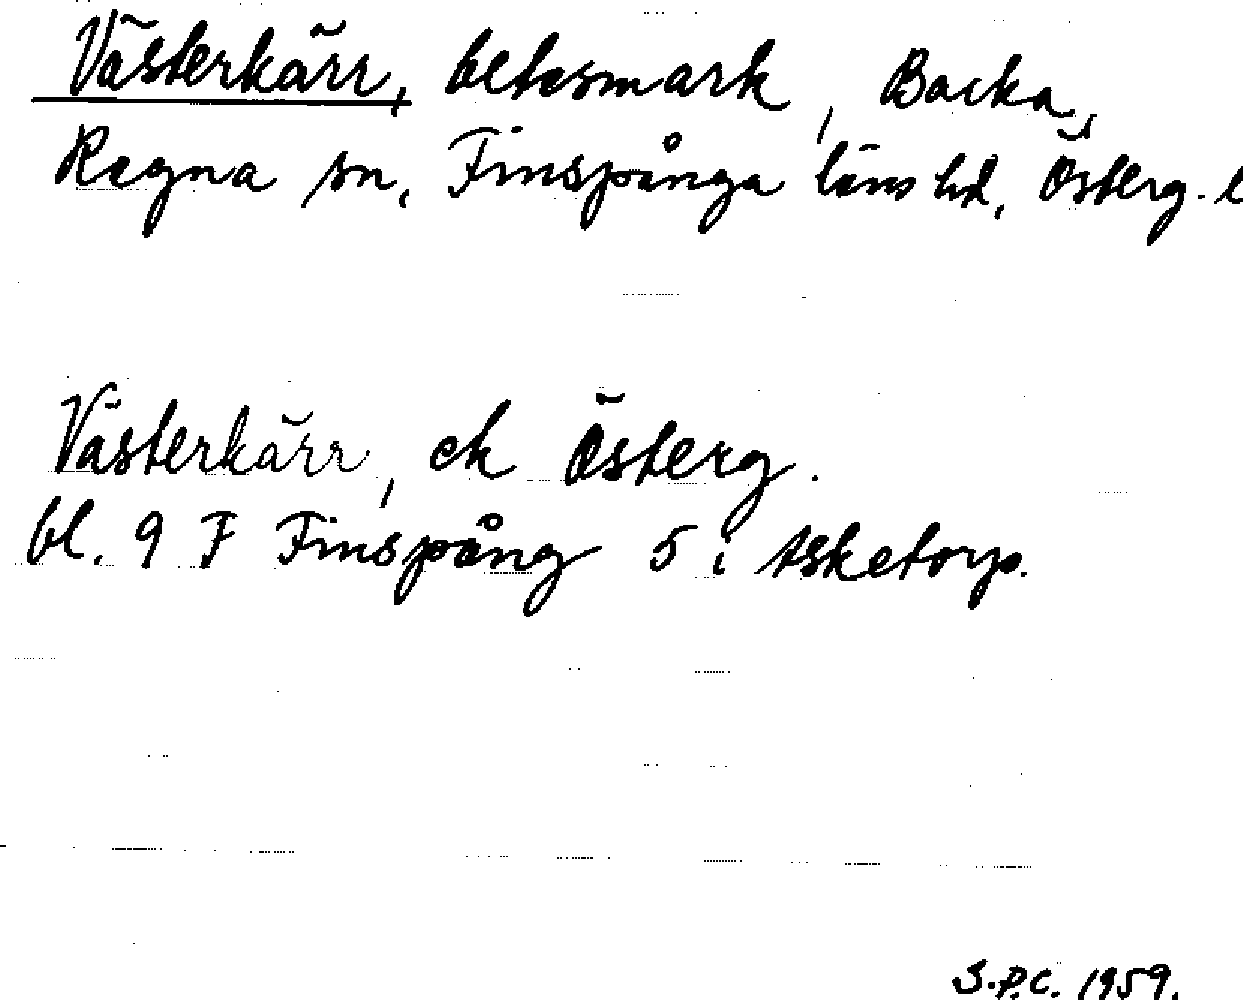 Västerkärr, betesmark, Backa,
Regna sn, Finspånga läns hd, Österg. l
Västerkärr, ek Österg.
bl. 9 F Finspång 5 i Asketorp.
S.P.C. 1959.